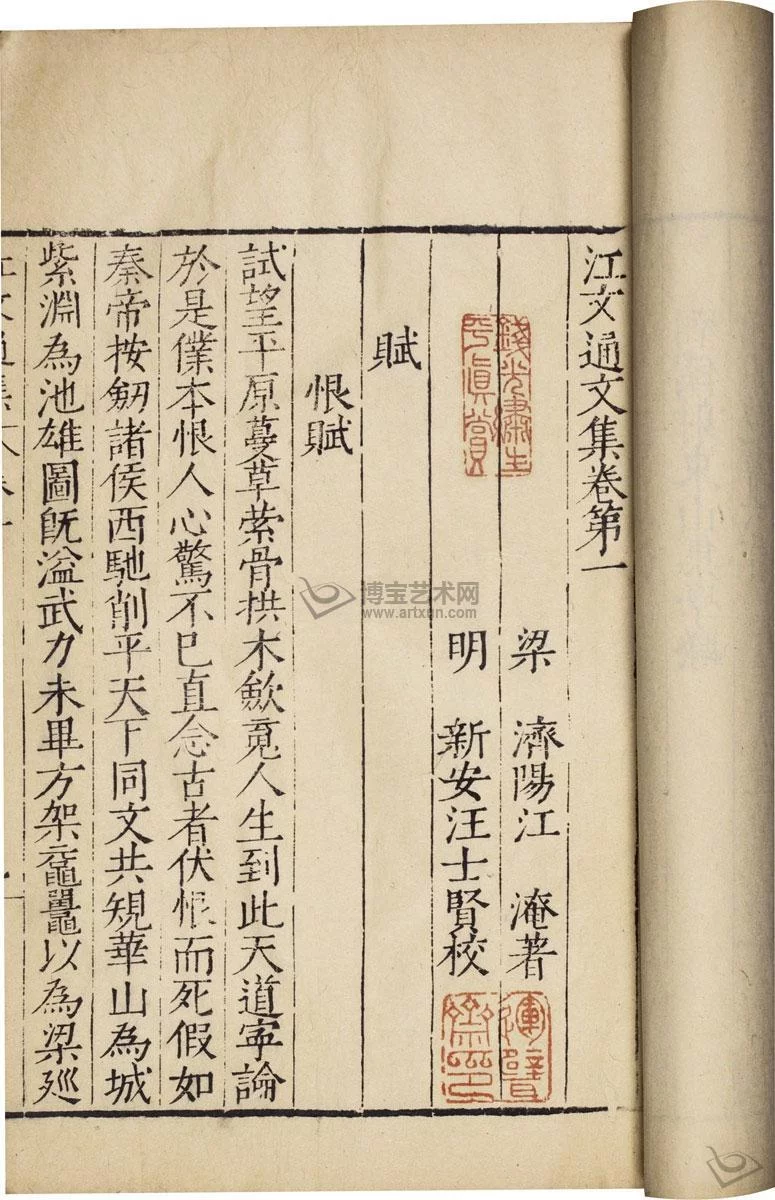 江文通文集卷第一
梁 濟陽江 淹著
明 新安汪士賢校
賦
恨賦
試望平原蔓草縈骨拱木歛䰟人生到此天道寧論
於是僕本恨人心驚不已直念古者伏恨而死假如
秦帝按劒諸侯西馳削平天下同文共規華山為城
紫淵為池雄圖旣溢武力未畢方架黿鼉以為梁廵
博宝艺术网
www.artxun.com